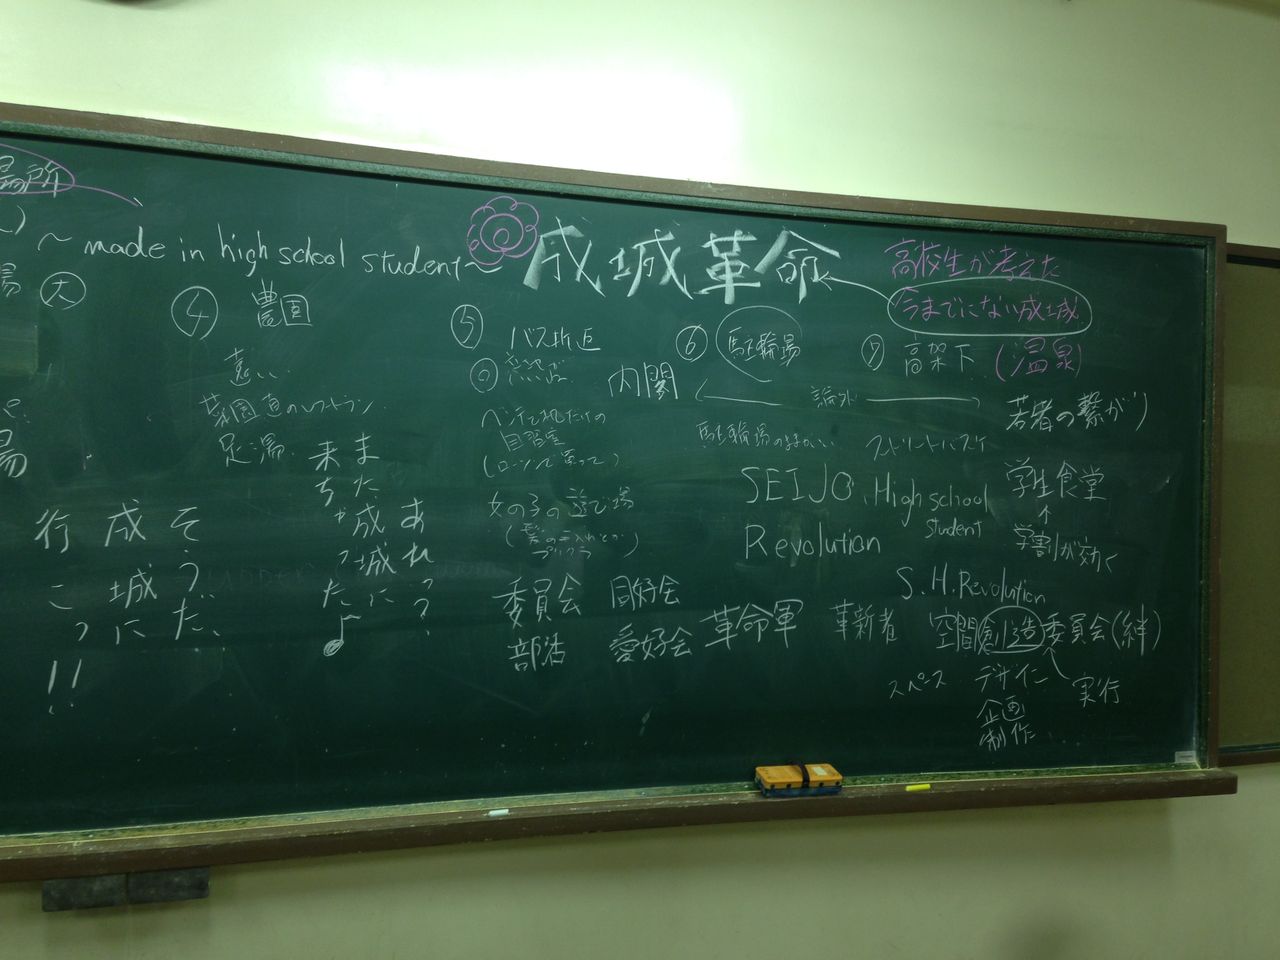 場所
～made in high school student～
成城革命
高校生が考えた
今までにない成城
(温泉)
大
④ 農園
遠い
菜園直のレストラン
足湯
⑤ バス折返
内閣
ベンチと机だけの
自習室
女の子の遊で場
⑥ 駐輪場
論外
⑦ 高架下
ストリートバスケ
若者の繋がり
学生食堂
↑
学割が効く
SEIJO High school student
Revolution
S.H.Revolution
そうだ、
成城に
行こっ!!
あれ??
また成城に
来ちゃった♪
委員会 同好会
部活 愛好会
革命軍 革新者 空間創造委員会(絆)
スペース デザイン 実行
企画
制作